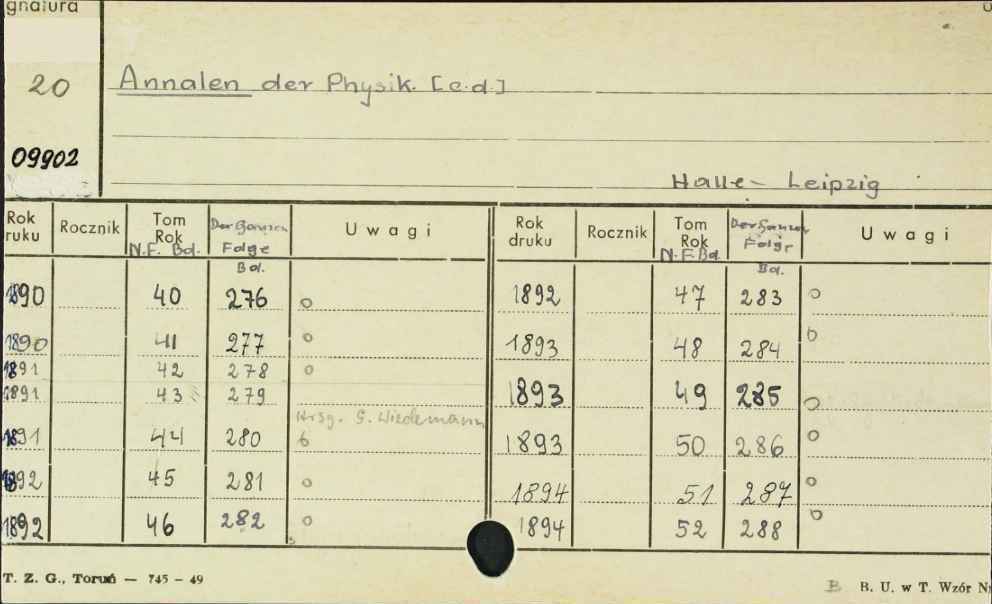 gnatura
20
Annalen der Physik. [c.d.]
09902
Halle - Leipzig
Rok ruku Rocznik Tom Rok N.F. Bd. Der Ganzen Folge Bd. Uwagi Rok druku Rocznik Tom Rok N.F. Bd. Der Ganzen Folge Bd. Uwagi
1890 40 276 o 1892 47 283 o
1890 41 277 o 1893 48 284 o
1891 42 278 o
1891 43 279 1893 49 285 o
Hrsg. G. Wiedemann
1891 44 280 o 1893 50 286 o
1892 45 281 o 1894 51 287 o
1892 46 282 o 1894 52 288 o
T. Z. G., Toruń — 745 — 49
B B. U. w T. Wzór N